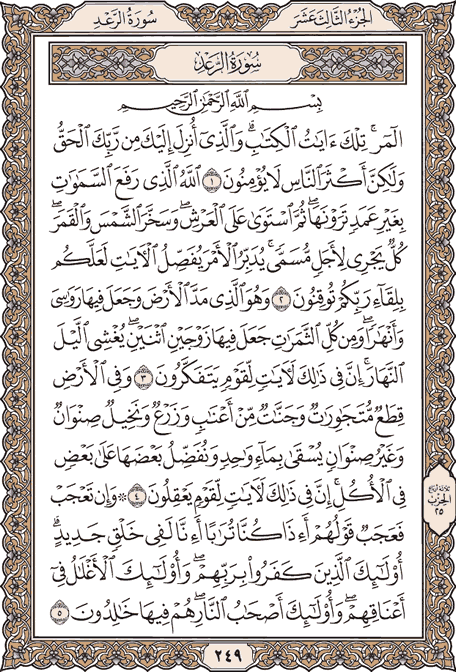 الجزء الثالث عشر
سورة الرعد
سورة الرعد
بسم الله الرحمن الرحيم
المٓر ۚ تِلْكَ ءَايَٰتُ ٱلْكِتَٰبِ ۗ وَٱلَّذِىٓ أُنزِلَ إِلَيْكَ مِن رَّبِّكَ ٱلْحَقُّ
وَلَٰكِنَّ أَكْثَرَ ٱلنَّاسِ لَا يُؤْمِنُونَ ١ ٱللَّهُ ٱلَّذِى رَفَعَ ٱلسَّمَٰوَٰتِ
بِغَيْرِ عَمَدٍ تَرَوْنَهَا ۖ ثُمَّ ٱسْتَوَىٰ عَلَى ٱلْعَرْشِ ۖ وَسَخَّرَ ٱلشَّمْسَ وَٱلْقَمَرَ ۖ
كُلٌّ يَجْرِى لِأَجَلٍ مُّسَمًّى ۚ يُدَبِّرُ ٱلْأَمْرَ يُفَصِّلُ ٱلْءَايَٰتِ لَعَلَّكُم
بِلِقَآءِ رَبِّكُمْ تُوقِنُونَ ٢ وَهُوَ ٱلَّذِى مَدَّ ٱلْأَرْضَ وَجَعَلَ فِيهَا رَوَٰسِىَ
وَأَنْهَٰرًا ۖ وَمِن كُلِّ ٱلثَّمَرَٰتِ جَعَلَ فِيهَا زَوْجَيْنِ ٱثْنَيْنِ ۖ يُغْشِى ٱلَّيْلَ
ٱلنَّهَارَ ۚ إِنَّ فِى ذَٰلِكَ لَءَايَٰتٍ لِّقَوْمٍ يَتَفَكَّرُونَ ٣ وَفِى ٱلْأَرْضِ
قِطَعٌ مُّتَجَٰوِرَٰتٌ وَجَنَّٰتٌ مِّنْ أَعْنَٰبٍ وَزَرْعٌ وَنَخِيلٌ صِنْوَانٌ
وَغَيْرُ صِنْوَانٍ يُسْقَىٰ بِمَآءٍ وَٰحِدٍ وَنُفَضِّلُ بَعْضَهَا عَلَىٰ بَعْضٍ
فِى ٱلْأُكُلِ ۚ إِنَّ فِى ذَٰلِكَ لَءَايَٰتٍ لِّقَوْمٍ يَعْقِلُونَ ٤ ۞ وَإِن تَعْجَبْ
فَعَجَبٌ قَوْلُهُمْ أَءِذَا كُنَّا تُرَٰبًا أَءِنَّا لَفِى خَلْقٍ جَدِيدٍ ۗ
أُو۟لَٰٓئِكَ ٱلَّذِينَ كَفَرُوا۟ بِرَبِّهِمْ ۖ وَأُو۟لَٰٓئِكَ ٱلْأَغْلَٰلُ فِىٓ
أَعْنَاقِهِمْ ۖ وَأُو۟لَٰٓئِكَ أَصْحَٰبُ ٱلنَّارِ ۖ هُمْ فِيهَا خَٰلِدُونَ ٥
ثلاثة أرباع
الحزب
٢٥
٢٤٩